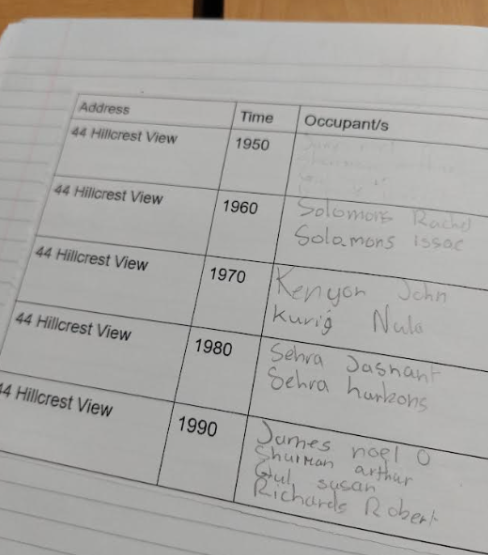 Address Time Occupant/s
44 Hillcrest View 1950
44 Hillcrest View 1960 Solomons Rachel
Solamons Issac
44 Hillcrest View 1970 Kenyon John
Kurig Nula
44 Hillcrest View 1980 Sehra Jasnant
Sehra hurkons
44 Hillcrest View 1990 James noel O
Shurman arthur
Gul susan
Richards Robert